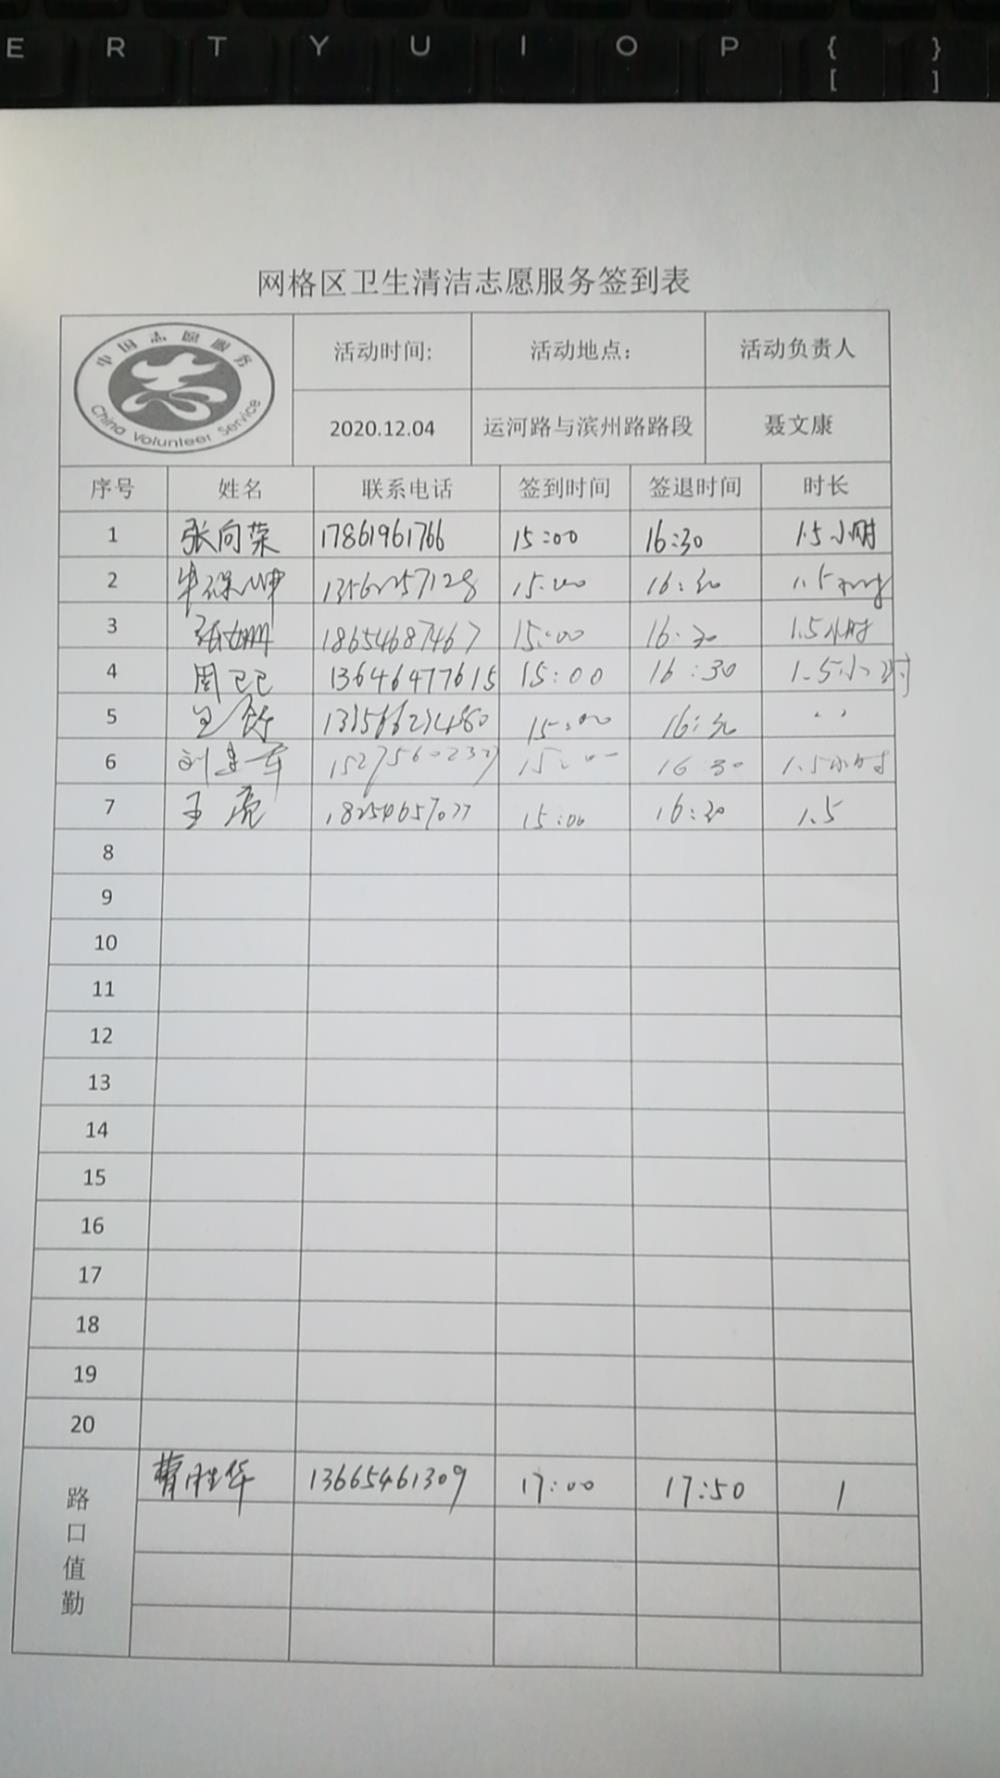 E R T Y U I O P { }
[ ]
网格区卫生清洁志愿服务签到表
中国志愿服务
China Volunteer Service
活动时间: 活动地点: 活动负责人
2020.12.04 运河路与滨州路路段 聂文康
序号 姓名 联系电话 签到时间 签退时间 时长
1 张向荣 17861961766 15:00 16:30 1.5小时
2 15:00 16:30 1.5小时
3 18654687467 15:00 16:30 1.5小时
4 周已已 13646477615 15:00 16:30 1.5小时
5 15:00 16:30 〃
6 刘建军 15:00 16:30 1.5小时
7 王亮 15:00 16:30 1.5
8
9
10
11
12
13
14
15
16
17
18
19
20
路口值勤 曹胜华 13665461309 17:00 17:50 1